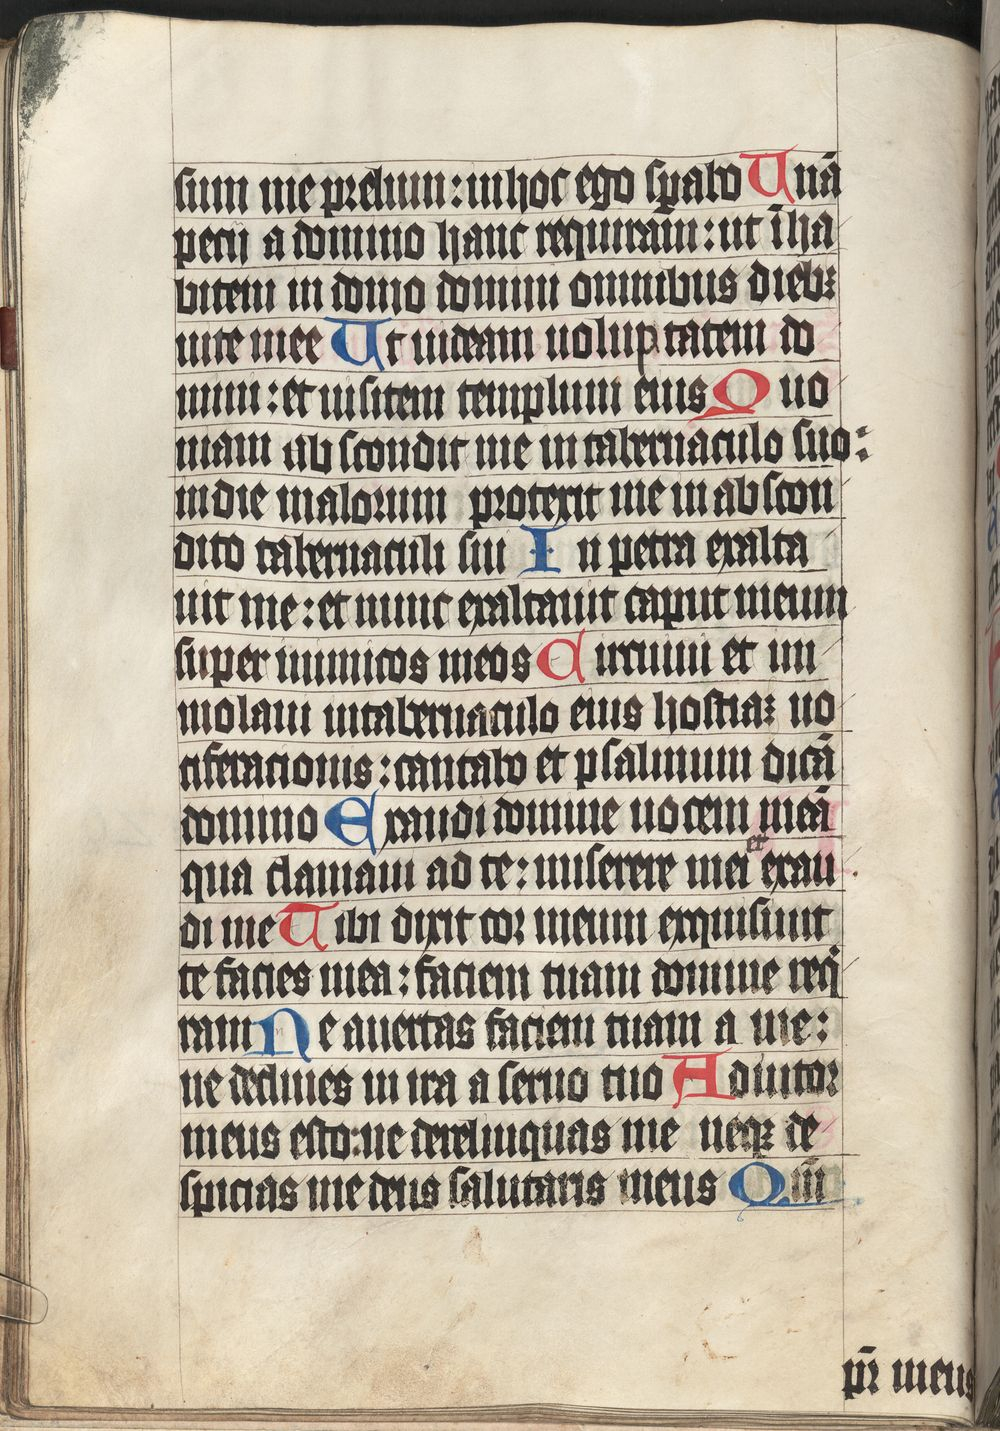 sum me prelium: in hoc ego sp̄abo Unā
pecij a domino hanc requiram: ut īha
bitem in domo domini omnibus diebꝫ
uite mee Ut uideam uoluptatem do
mini: et uisitem templum eius Quo
niam abscondit me in tabernaculo suo:
in die malorum protexit me in abscon
dito tabernaculi sui In petra exalta
uit me: et nunc exaltauit caput meum
super inimicos meos Circuiui et im
molaui in tabernaculo eius hostiaꝫ uo
ciferacionis: cantabo et psalmum dicā
domino Exaudi domine uocem meā
qua clamaui ad te: miserere mei et exau
di me Tibi dixit cor meum exquisiuit
te facies mea: faciem tuam domine req̄
ram Ne auertas faciem tuam a me:
ne declines in ira a seruo tuo Adiutor
meus esto: ne derelinquas me neqꝫ de
spicias me deus salutaris meus Qm̄
pr̄ meus